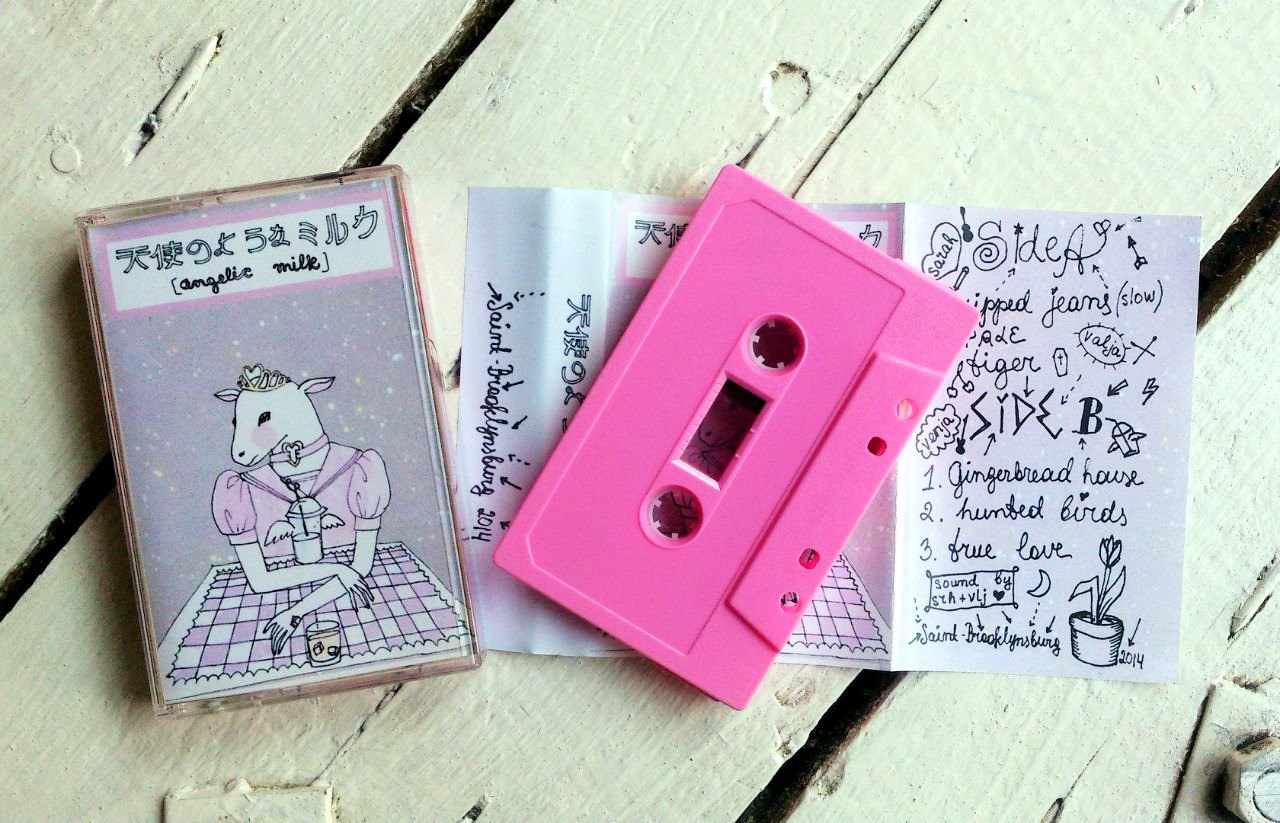 天使のようなミルク
[angelic milk]
Saint-Brooklynsburg 2014
天使のよ
天
ク
sarah
Side A
ipped jeans (slow)
valja
tiger
SIDE B
venja
1. Gingerbread house
2. hunted birds
3. true love
sound by
srh + vlj
Saint-Brooklynsburg
2014